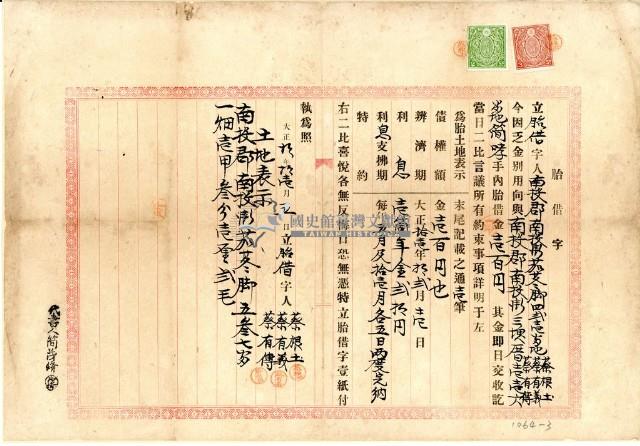 胎借字
立胎借字人南投郡南投街
蔡根土
蔡有義
蔡有傳
今因乏金別用向與南投郡南投街三塊厝
手內胎借金壹百円 其金即日交收訖
當日二比言議所有約束事項詳明于左
為胎土地表示 末尾記載之通壹筆
債權額 金壹百円也
辨濟期 大正拾壹年拾弍月 日
利息 壹箇年金弍拾円
利息支拂期 每年五月及拾壹月各五日兩度完納
特約
右二比喜悅各無反悔口恐無憑特立胎借字壹紙付
執為照
大正 年 月 日立胎借字人
蔡根土
蔡有義
蔡有傳
土地表示
南投郡南投街 腳五叁七
一畑壹甲叁分壹厘弍毛
代書人簡
國史館臺灣文獻館
TAIWAN HISTORICA
1064-3